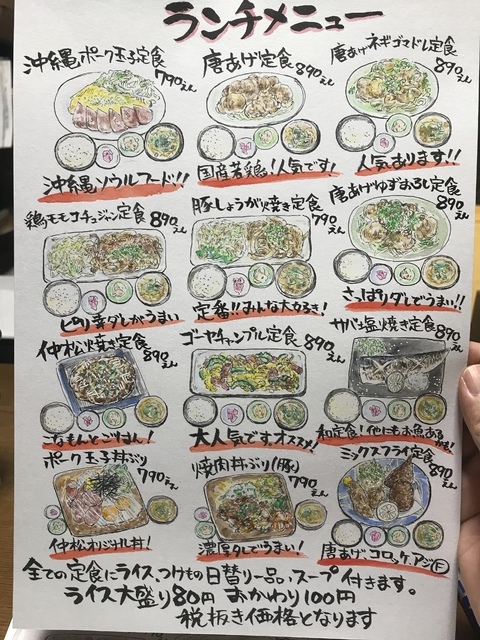 ランチメニュー
沖縄ポーク玉子定食
790えん
沖縄ソウルフード!!
唐あげ定食
890えん
国産若鶏!人気です!
唐あげネギゴマドレ定食
890えん
人気あります!!
鶏モモコチュジャン定食
890えん
ピリ辛ダレがうまい
豚しょうが焼き定食
790えん
定番!!みんな大好き!
唐あげゆずおろし定食
890えん
さっぱりダレでうまい!!
仲松焼き定食
890えん
こなもんとごはん!
ゴーヤチャンプル定食
890えん
大人気です。オススメ!
サバ塩焼き定食
890えん
和定食!他にもお魚あるかも!
ポーク玉子丼ぶり
790えん
仲松オリジナル丼!
焼肉丼ぶり(豚)
790えん
濃厚ダレでうまい!
ミックスフライ定食
890えん
唐あげ コロッケ、アジF
全ての定食にライス、つけもの日替り一品、スープ付きます。
ライス大盛り80円 おかわり100円
税抜き価格となります